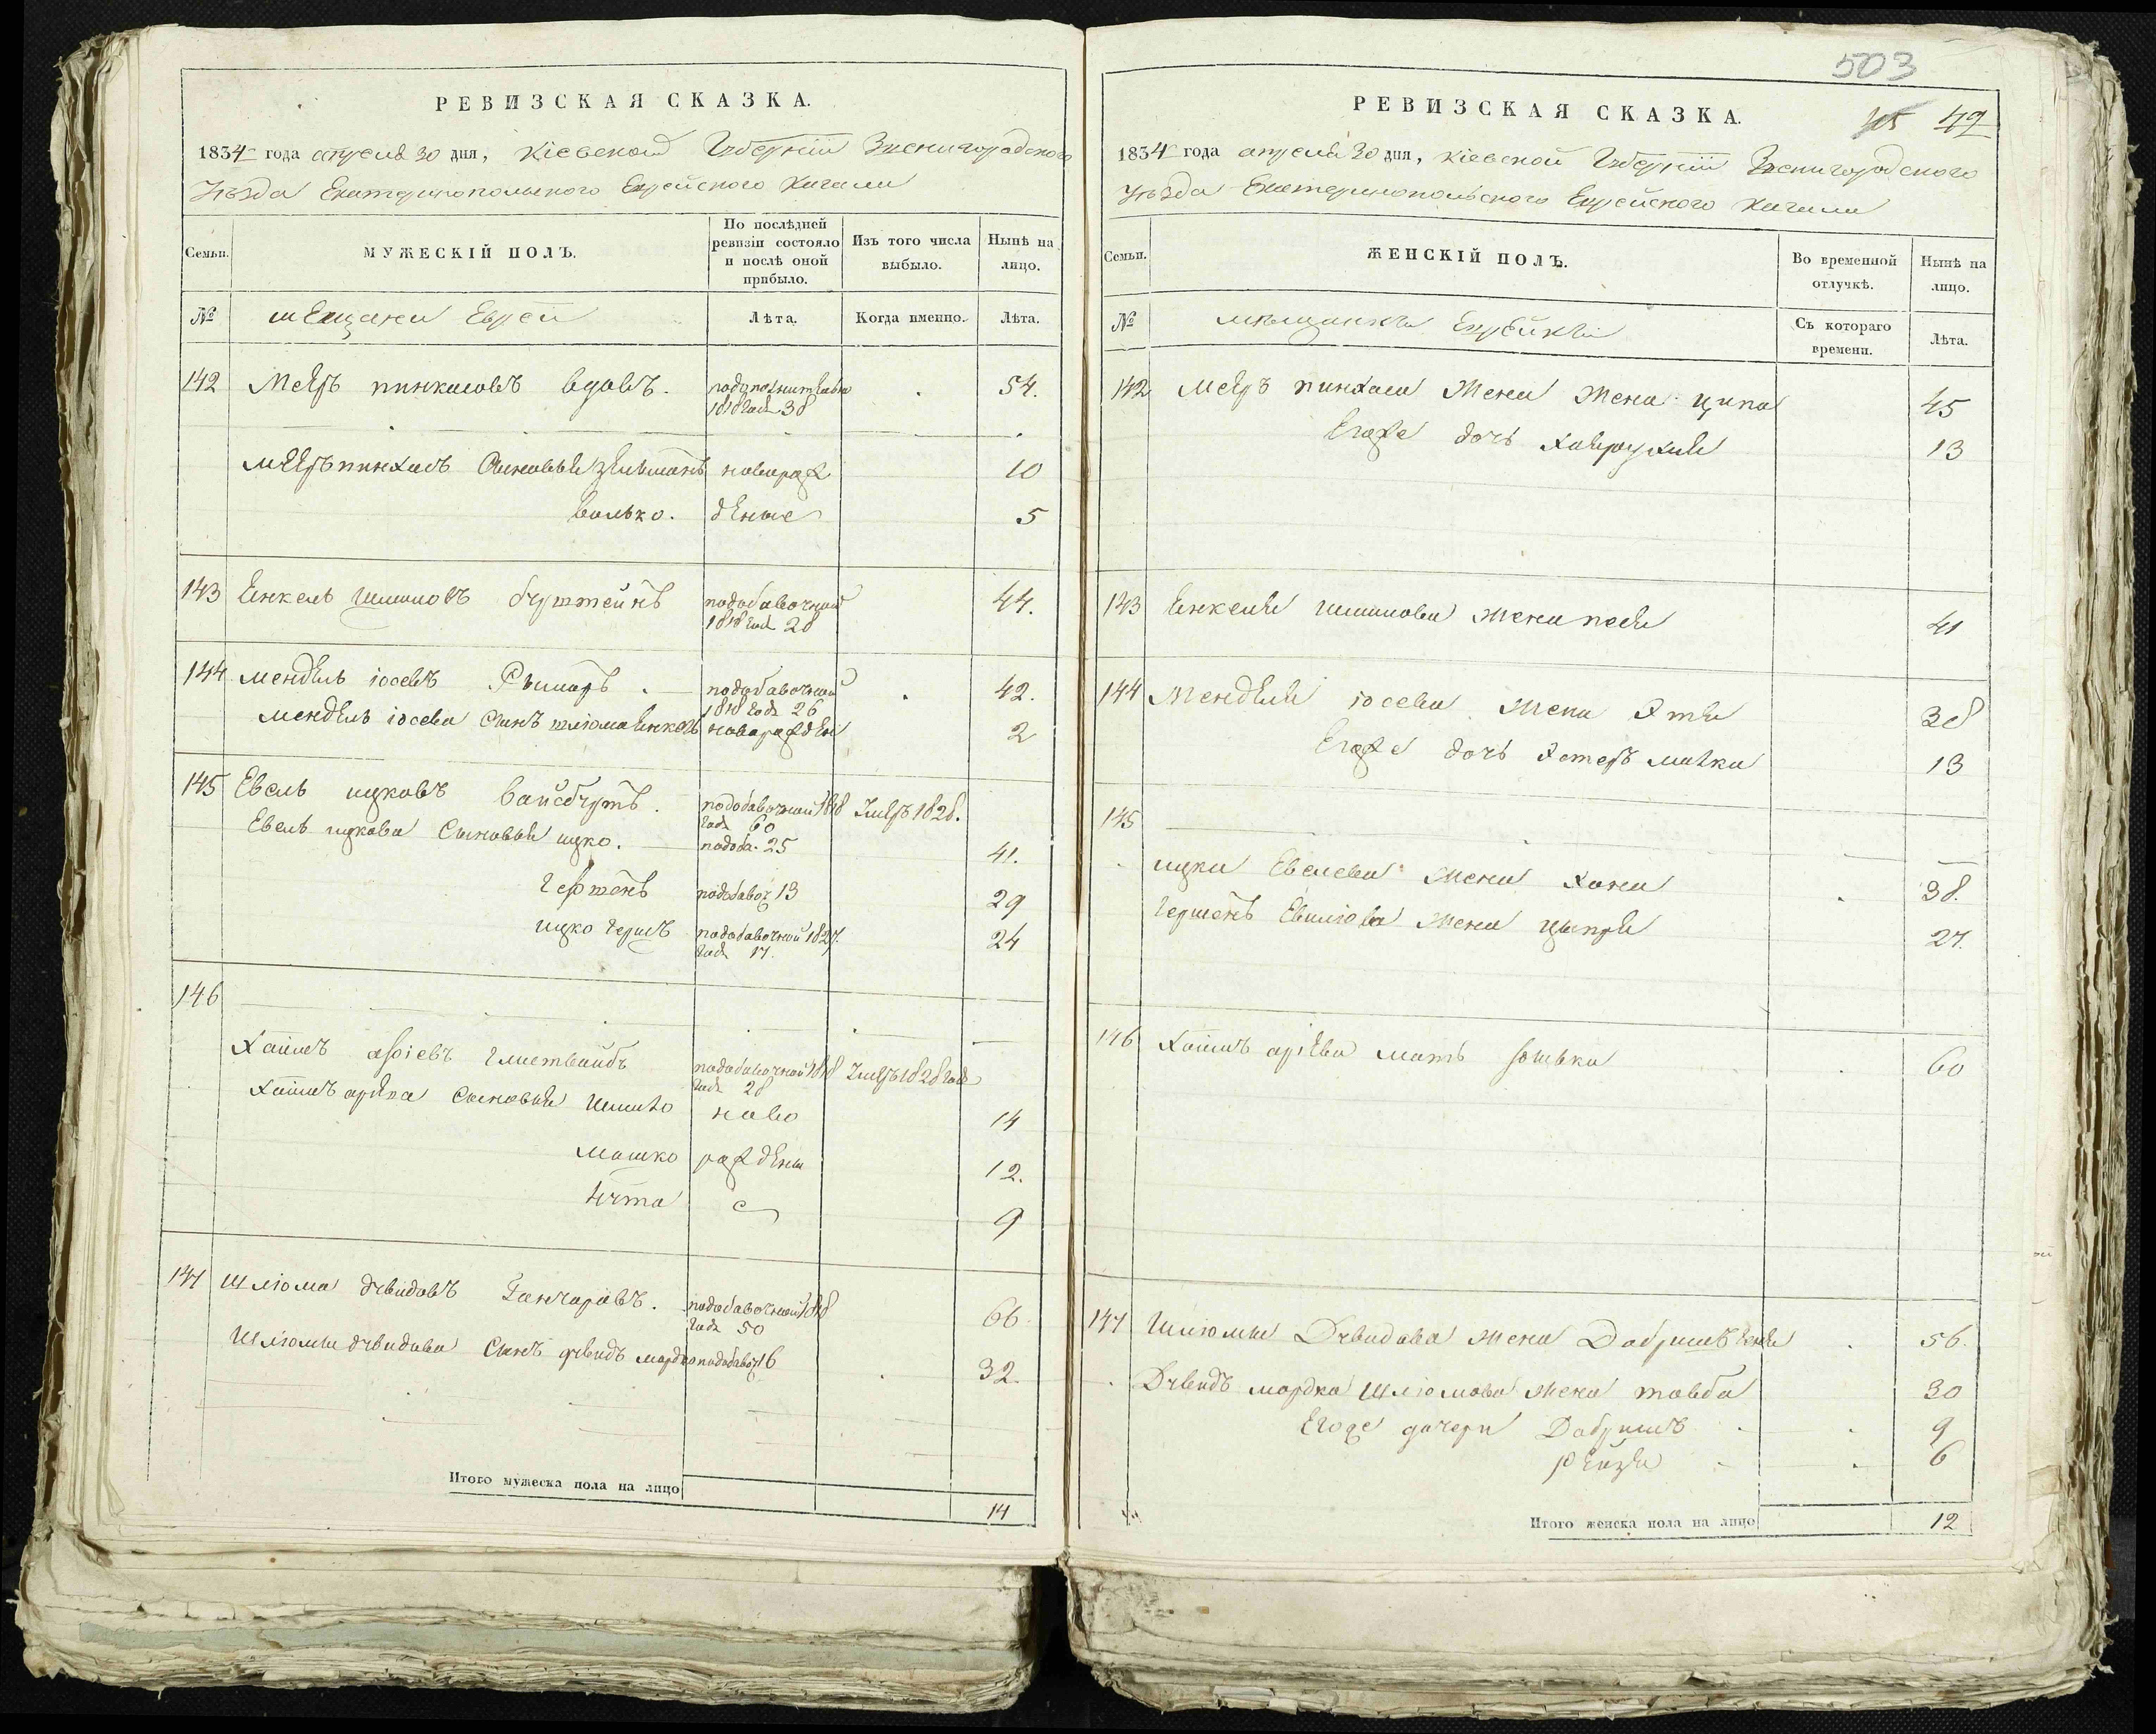 РЕВИЗСКАЯ СКАЗКА.
1834 года апреля 30 дня, Кіевской Губерніи Звенигородского
Уѣзда Екатеринопольского Еврейского Кагала
Семьи.
МУЖЕСКІЙ ПОЛЪ.
По послѣдней ревизіи состояло и послѣ оной прибыло.
Изъ того числа выбыло.
Нынѣ на лицо.
№
мещане Евреи
Лѣта.
Когда именно.
Лѣта.
142 Меръ пинкасовъ вдовъ. 1818 года 38 54.
Мееръ пинхасъ Сыновья зельманъ новорож 10
волько. деные 5
143 Енкель Шимоновъ подобавочной 1818 года 28 44.
144 Мендель іосевъ Рымаръ. подобавочной 1818 года 26 42.
Мендель іосева Сынъ шліома Енкель новарожден 2
145 Евель ицковъ вайсбуртъ. подобавочной 1818 года 60 Умеръ 1828.
Евель ицкова Сыновья ицко. подоба. 25 41.
Гершонъ подобавоч 13 29
ицко гершъ подобавочной 1827. года 17. 24
146
Хаимъ аріевъ подобавочной 1818 года 28 Умеръ 1828 года
Хаимъ аріева Сыновья Шимхо ново 14
Мошко рожденые 12.
Нута 9
147 Шліома дувидовъ Ганчаровъ. подобавочной 1818 года 50 66
Шліомы дувидова Сынъ дувидъ мордко подобавоч 16 32.
Итого мужеска пола на лицо 14
503
45 49
РЕВИЗСКАЯ СКАЗКА.
1834 года апреля 30 дня, Кіевской Губерніи Звенигородского
Уѣзда Екатеринопольского Еврейского Кагала
Семьи.
ЖЕНСКІЙ ПОЛЪ.
Во временной отлучкѣ.
Нынѣ на лицо.
№
мѣщанки Еврейки
Съ котораго времени.
Лѣта.
142 Меръ пинхаса Жена Ципа 45
Егоже дочь 13
143 Енкеля Шимонова жена песя 41
144 Менделя іосева жена Этя 38
Егоже дочь Эстеръ малка 13
145
ицка Евелева жена Хана 38.
Гершонъ Евеліова жена ципря 27.
146 Хаимъ аріева мать 60
147 Шліомы Дувидова жена Добрышъ Геня 56.
Дувидъ мордка Шліомова жена товба 30
Егоже дочери Добришъ 9
рейзя 6
Итого женска пола на лицо 12